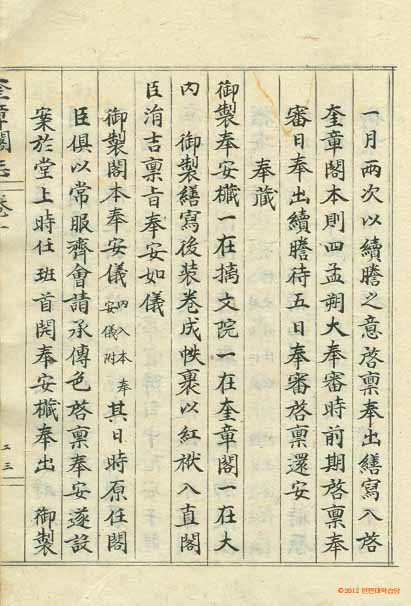 一月兩次以續謄之意啓稟奉出繕寫入啓
奎章閣本則四孟朔大奉審時前期啓稟奉
審日奉出續謄待五日奉審啓稟還安
奉藏
御製奉安欌一在摛文院一在奎章閣一在大
內 御製繕寫後裝卷成帙裹以紅袱入直閣
臣涓吉稟旨奉安如儀
御製閣本奉安儀 內入本奉安儀附 其日時原任閣
臣俱以常服濟會請承傳色啓稟奉安遂設
案於堂上時任班首開奉安欌奉出 御製
奎章閣志 卷一
二三
©2012 한한대학습당